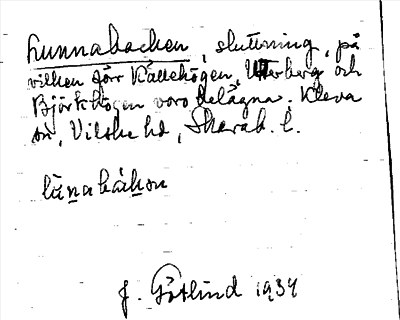 Lunnabacken, sluttning, på
vilken görr Källehögen, och
Björkhögen voro belägna. Kleva
sn, Vilske hd, Skarab. l.
J. Götlind 1934